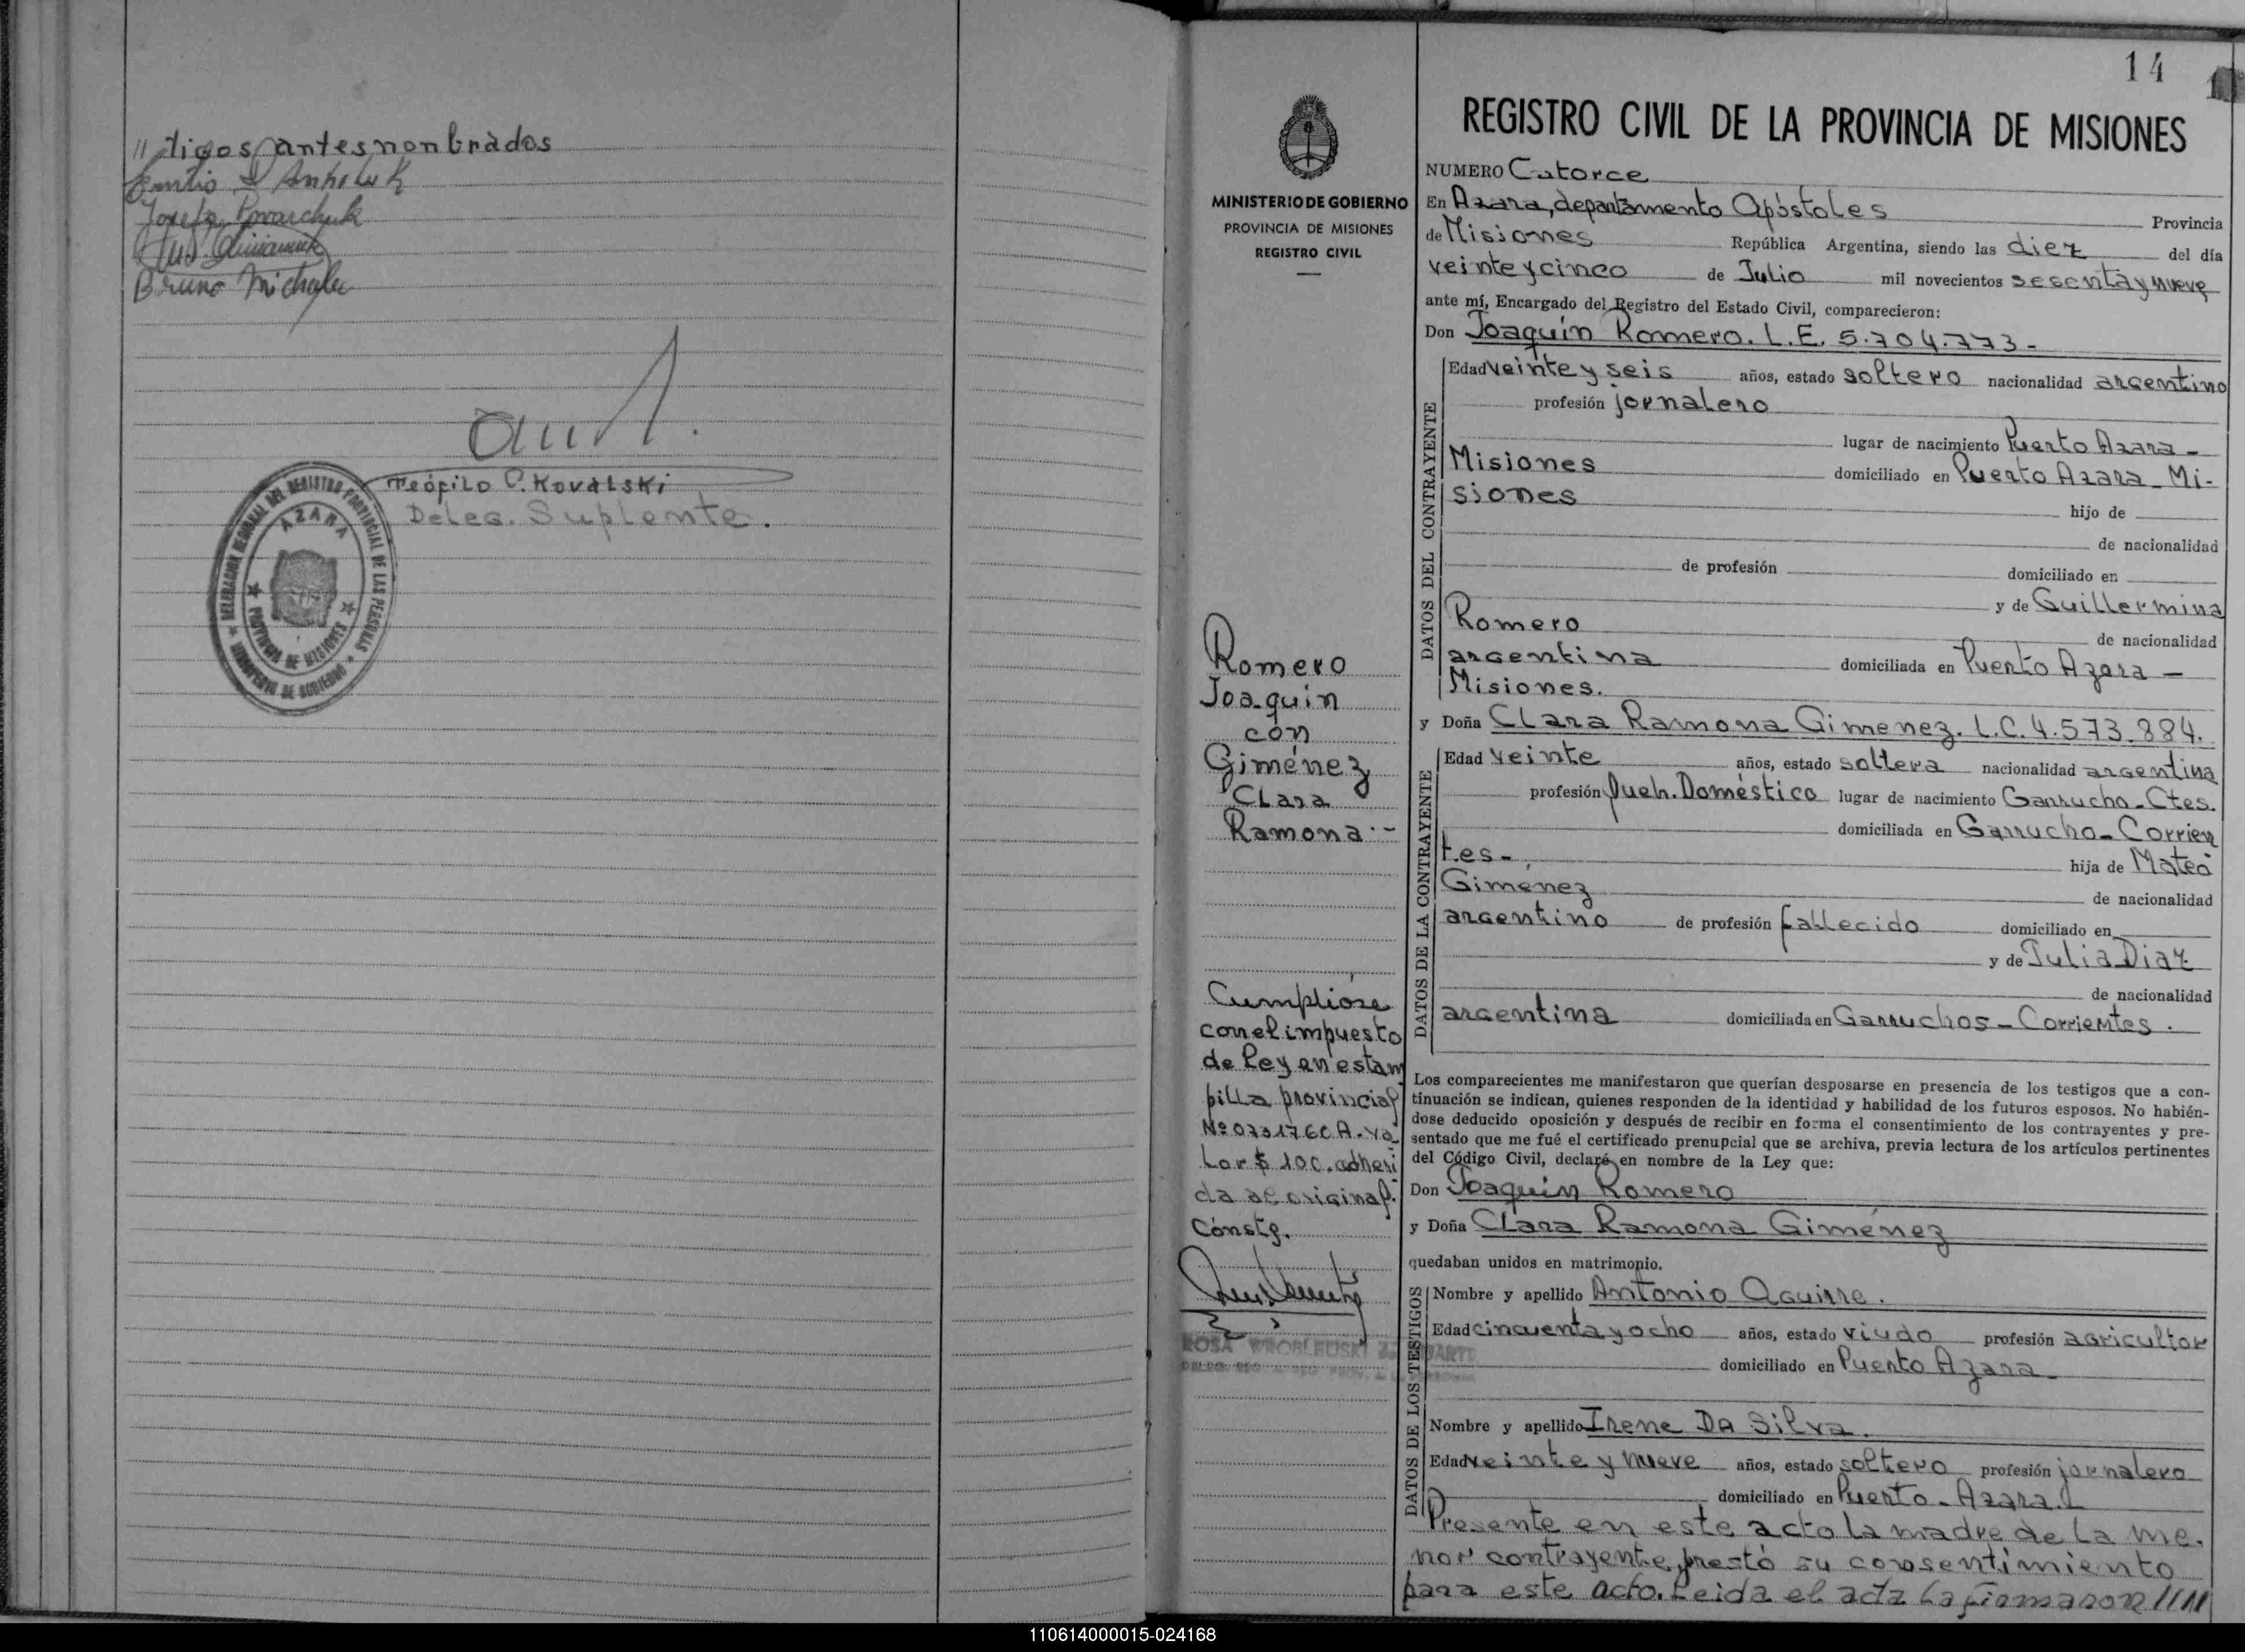 // tigos antes nonbrados
Emilio Anholuk
Josefa Kovarchuk
Bruno Michalec
Teófilo C. Kovalski
Deleg. Suplente.
DELEGACION REGIONAL DEL REGISTRO PROVINCIAL DE LAS PERSONAS
AZARA
PROVINCIA DE MISIONES
MINISTERIO DE GOBIERNO
14
MINISTERIO DE GOBIERNO
PROVINCIA DE MISIONES
REGISTRO CIVIL
Romero
Joaquin
con
Giménez
Clara
Ramona.-
Cumplióse
con el impuesto
de ley en estam
pilla provincial
Nº 0731760 A. va
lor $ 100. adheri
da al original.
Conste.
ROSA WROBLEUSKI DUARTE
REGISTRO CIVIL DE LA PROVINCIA DE MISIONES
NUMERO Catorce
En Azara, departamento Apóstoles Provincia
de Misiones República Argentina, siendo las diez del día
veinte y cinco de Julio mil novecientos sesenta y nueve
ante mí, Encargado del Registro del Estado Civil, comparecieron:
Don Joaquín Romero. L.E. 5.704.773-
DATOS DEL CONTRAYENTE
Edad veinte y seis años, estado soltero nacionalidad argentino
profesión jornalero
lugar de nacimiento Puerto Azara -
Misiones domiciliado en Puerto Azara - Mi-
siones hijo de
de nacionalidad
de profesión domiciliado en
y de Guillermina
Romero de nacionalidad
argentina domiciliada en Puerto Azara -
Misiones.
y Doña Clara Ramona Gimenez. L.C. 4.573.884.
DATOS DE LA CONTRAYENTE
Edad veinte años, estado soltera nacionalidad argentina
profesión Queh. Doméstico lugar de nacimiento Garrucho - Ctes.
domiciliada en Garrucho - Corrien
tes - hija de Mateo
Giménez de nacionalidad
argentino de profesión fallecido domiciliado en
y de Julia Diaz
de nacionalidad
argentina domiciliada en Garruchos - Corrientes.
Los comparecientes me manifestaron que querían desposarse en presencia de los testigos que a con-
tinuación se indican, quienes responden de la identidad y habilidad de los futuros esposos. No habién-
dose deducido oposición y después de recibir en forma el consentimiento de los contrayentes y pre-
sentado que me fué el certificado prenupcial que se archiva, previa lectura de los artículos pertinentes
del Código Civil, declaré en nombre de la Ley que:
Don Joaquín Romero
y Doña Clara Ramona Giménez
quedaban unidos en matrimonio.
DATOS DE LOS TESTIGOS
Nombre y apellido Antonio Aguirre.
Edad cincuenta y ocho años, estado viudo profesión agricultor
domiciliado en Puerto Azara
Nombre y apellido Irene Da Silva.
Edad veinte y nueve años, estado soltero profesión jornalero
domiciliado en Puerto - Azara.
Presente en este acto la madre de la me.
nor contrayente, prestó su consentimiento
para este acto. Leida el acta la firmaron ////
110614000015-024168